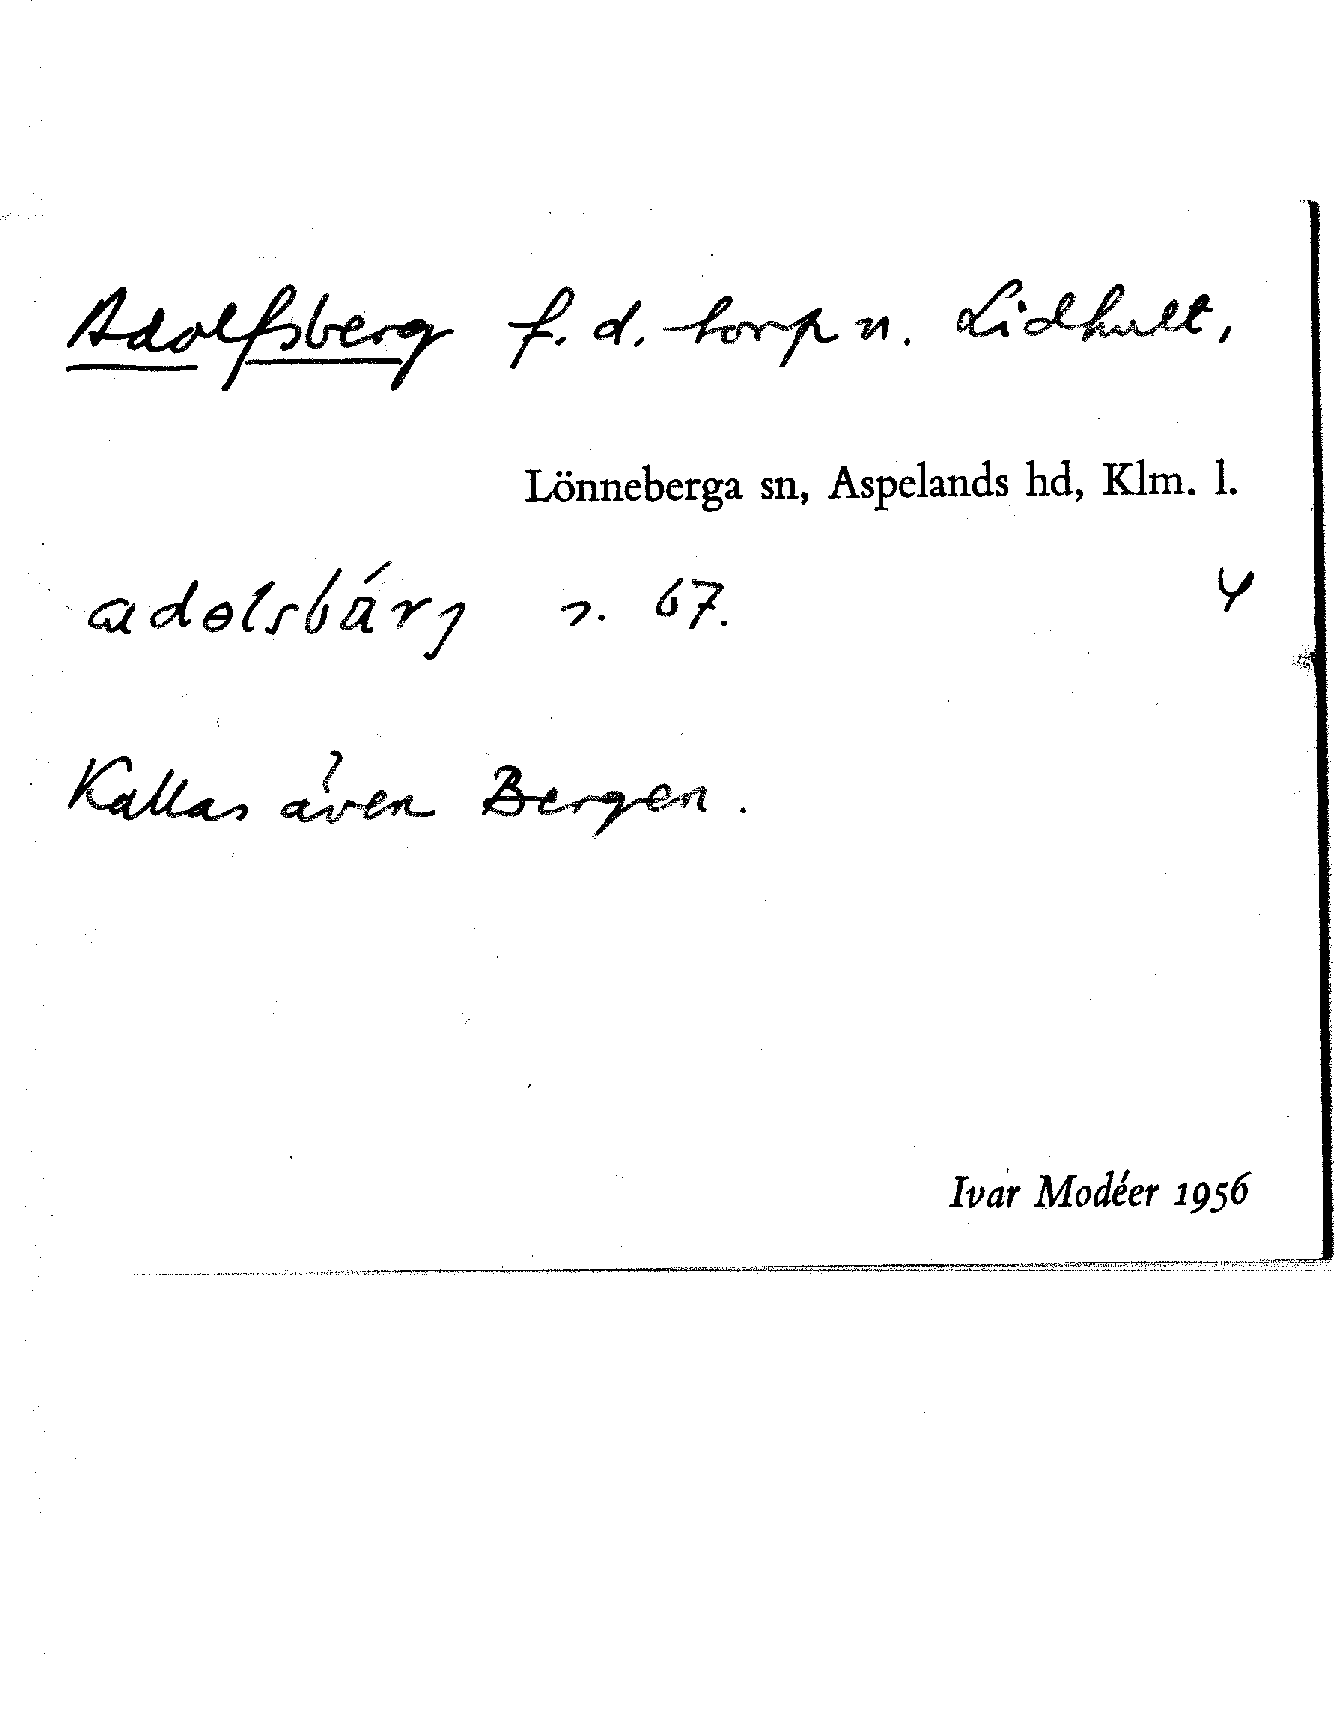 Adolfsberg f. d. torp u. Lidhult,
Lönneberga sn, Aspelands hd, Klm. l.
67. 4
Kallas även Bergen.
Ivar Modéer 1956